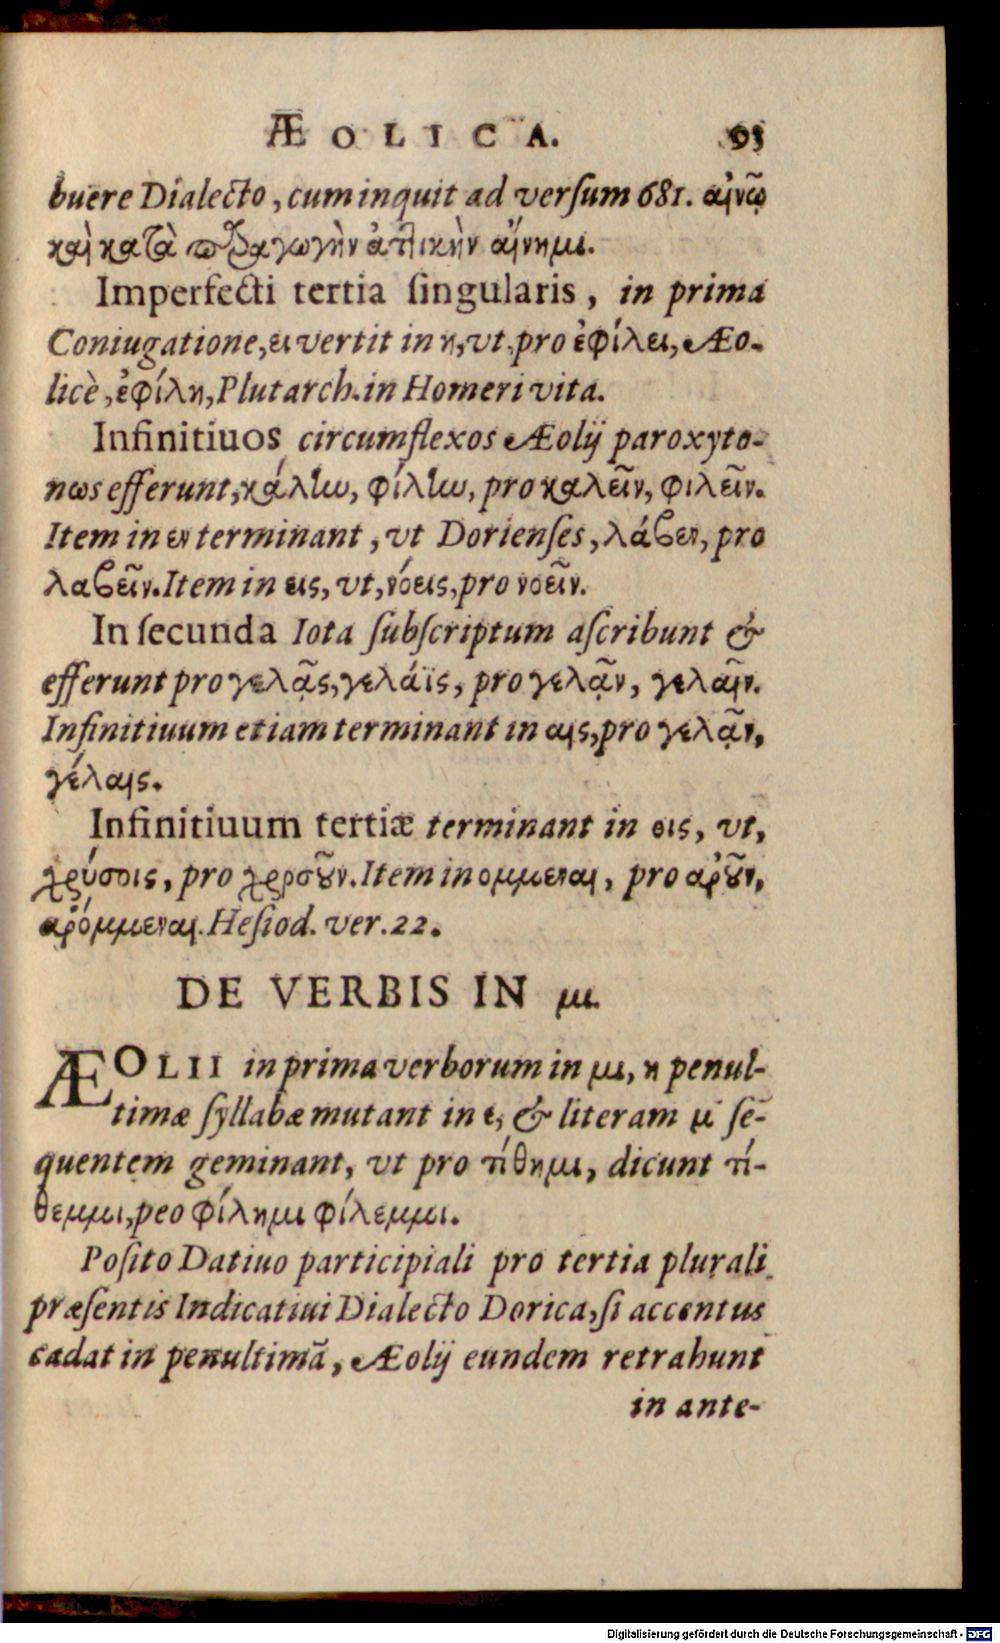 ÆOLICA. 93
buere Dialecto, cum inquit ad verſum 681. αἰνῶ
καὶ κατὰ παραγωγὴν ἀτλικὴν αἴνημι.
Imperfecti tertia ſingularis, in prima
Coniugatione, ει vertit in η, vt pro ἐφίλει, Æo-
licè, ἐφίλη, Plutarch. in Homeri vita.
Infinitiuos circumflexos Æolij paroxyto-
nωs efferunt, κάλην, φίλην, pro καλεῖν, φιλεῖν.
Item in εν terminant, vt Dorienſes, λάβεν, pro
λαβεῖν. Item in εις, vt, νόεις, pro νοεῖν.
In ſecunda Iota ſubſcriptum aſcribunt &
efferunt pro γελᾷς, γελάϊς, pro γελᾷν, γελαῖν.
Infinitiuum etiam terminant in αις, pro γελᾷν,
γέλαις.
Infinitiuum tertiæ terminant in οις, vt,
χρύσοις, pro χρυσοῦν. Item in ομμεναι, pro αροῦν,
αρόμμεναι. Heſiod. ver. 22.
DE VERBIS IN μι.
ÆOLII in prima verborum in μι, η penul-
timæ ſyllabæ mutant in ε, & literam μ ſe-
quentem geminant, vt pro τίθημι, dicunt τί-
θεμμι, peo φίλημι φίλεμμι.
Poſito Datiuo participiali pro tertia plurali
præſentis Indicatiui Dialecto Dorica, ſi accentus
cadat in penultimã, Æolij eundem retrahunt
in ante-
Digitalisierung gefördert durch die Deutsche Forschungsgemeinschaft - DFG